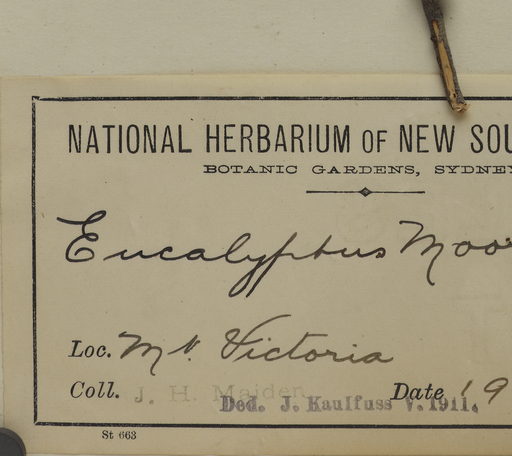 NATIONAL HERBARIUM OF NEW SOU
BOTANIC GARDENS, SYDNEY
Eucalyptus Moo
Loc. Mt. Victoria
Coll. J. H. Maiden Date 19
Ded. J. Kaulfuss V. 1911.
St 663